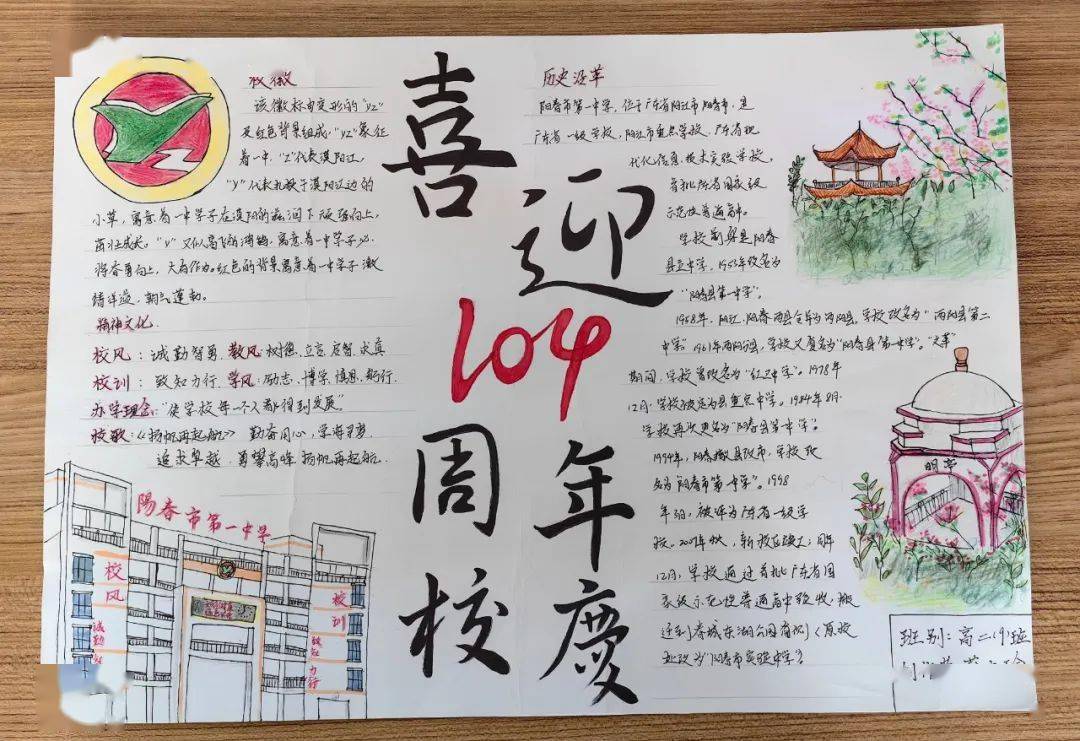 校徽
该徽标由变形的"YZ"
及红色背景组成，"YZ"象征
着一中，"Z"代表漠阳江，
"Y"代表扎敬于漠阳江边的
小草，寓意着一中学子在漠阳的滋润下顽强向上，
茁壮成长。"Y"又似高飞的鸿鹄，寓意着一中学子必
将奋勇向上，大有作为。红色的背景寓意着一中学子激
情洋溢，朝气蓬勃。
精神文化
校风：诚勤智勇 教风：树德、立言、启智、求真
校训：致知力行 学风：励志、博学、慎思、笃行.
办学理念："使学校每一个人都得到发展"
校歌：《扬帆再起航》 勤奋同心，学海
追求卓越，勇攀高峰 扬帆再起航
陽春市第一中学
校风
诚勤
校训
致知力行
喜迎
104
周年
校慶
历史沿革
阳春市第一中学，位于广东省阳江市阳春市，是
广东省一级学校，阳江市重点学校，广东省现
代化信息技术实验学校，
首批广东省国家级
示范性普通高中。
学校前身是阳春
县立中学，1953年改名为
"阳春县第一中学"。
1958年，阳江、阳春两县合并为两阳县，学校改名为"两阳县第二
中学" 1961年两阳分县，学校又复名为"阳春县第一中学"。"文革"
期间，学校曾改名为"红卫中学"。1978年
12月，学校被定为县重点中学。1984年8月，
学校再次更名为"阳春县第一中学"。
1994年，阳春撤县改市，学校改
名为"阳春市第一中学"。1998
年初，被评为广东省一级学
校。2007年秋，新校区竣工；同年
12月，学校通过首批广东省国
家级示范性普通高中验收，搬
迁到春城东湖公园西侧（原校
址改为"阳春市实验中学"）
明亭
班别：高二(9)班